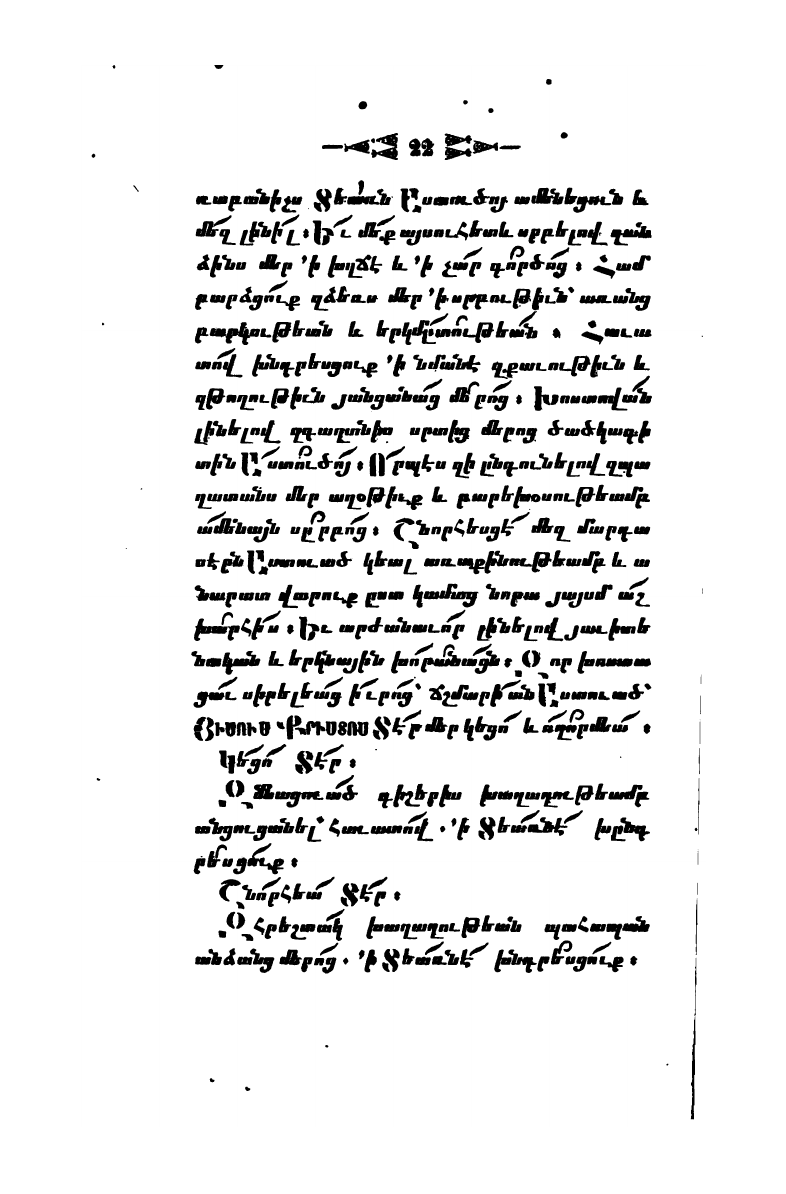 22
ռաբանիչս Տեառն Աստուծոյ ամենեցուն և
մեզ լինիլ։ Եւ մեք այսուհետև սրբելով զան
ձինս մեր ՚ի խղճէ և ՚ի չար գործոց։ Համ
բարձցուք զձեռս մեր ՚ի սրբութիւն՝ առանց
բարկութեան և երկմտութեան։ Հաւա
տով խնդրեսցուք ՚ի նմանէ զքաւութիւն և
զթողութիւն յանցանաց մերոց։ Խոստովան
լինելով զգաղտնիս սրտից մերոց ծածկագի
տին Աստուծոյ։ Որպէս զի ընդունելով զպա
ղատանս մեր աղօթիւք և բարեխօսութեամբ
ամենայն սըրբոց։ Շնորհեսցէ մեզ մարդա
սէրն Աստուած կեալ առաքինութեամբ և ա
նարատ վարուք ըստ կամաց նորա յայսմ աշ
խարհիս։ Եւ արժանաւոր լինելով յաւիտե
նական և երկնային խորանացն։ Զոր խոստա
ցաւ սիրելեաց իւրոց՝ ճշմարիտն Աստուած՝
ՅԻՍՈՒՍ ՔՐԻՍՏՈՍ Տէր մեր կեցո և ողորմեա։
Կեցո Տէր։
Զմնացուած գիշերիս խաղաղութեամբ
անցուցանել՝ հաւատով. ՚ի Տեառնէ խընդ
րեսցուք։
Շնորհեա Տէր։
Զհրեշտակ խաղաղութեան պահապան
անձանց մերոց. ՚ի Տեառնէ խնդրեսցուք։